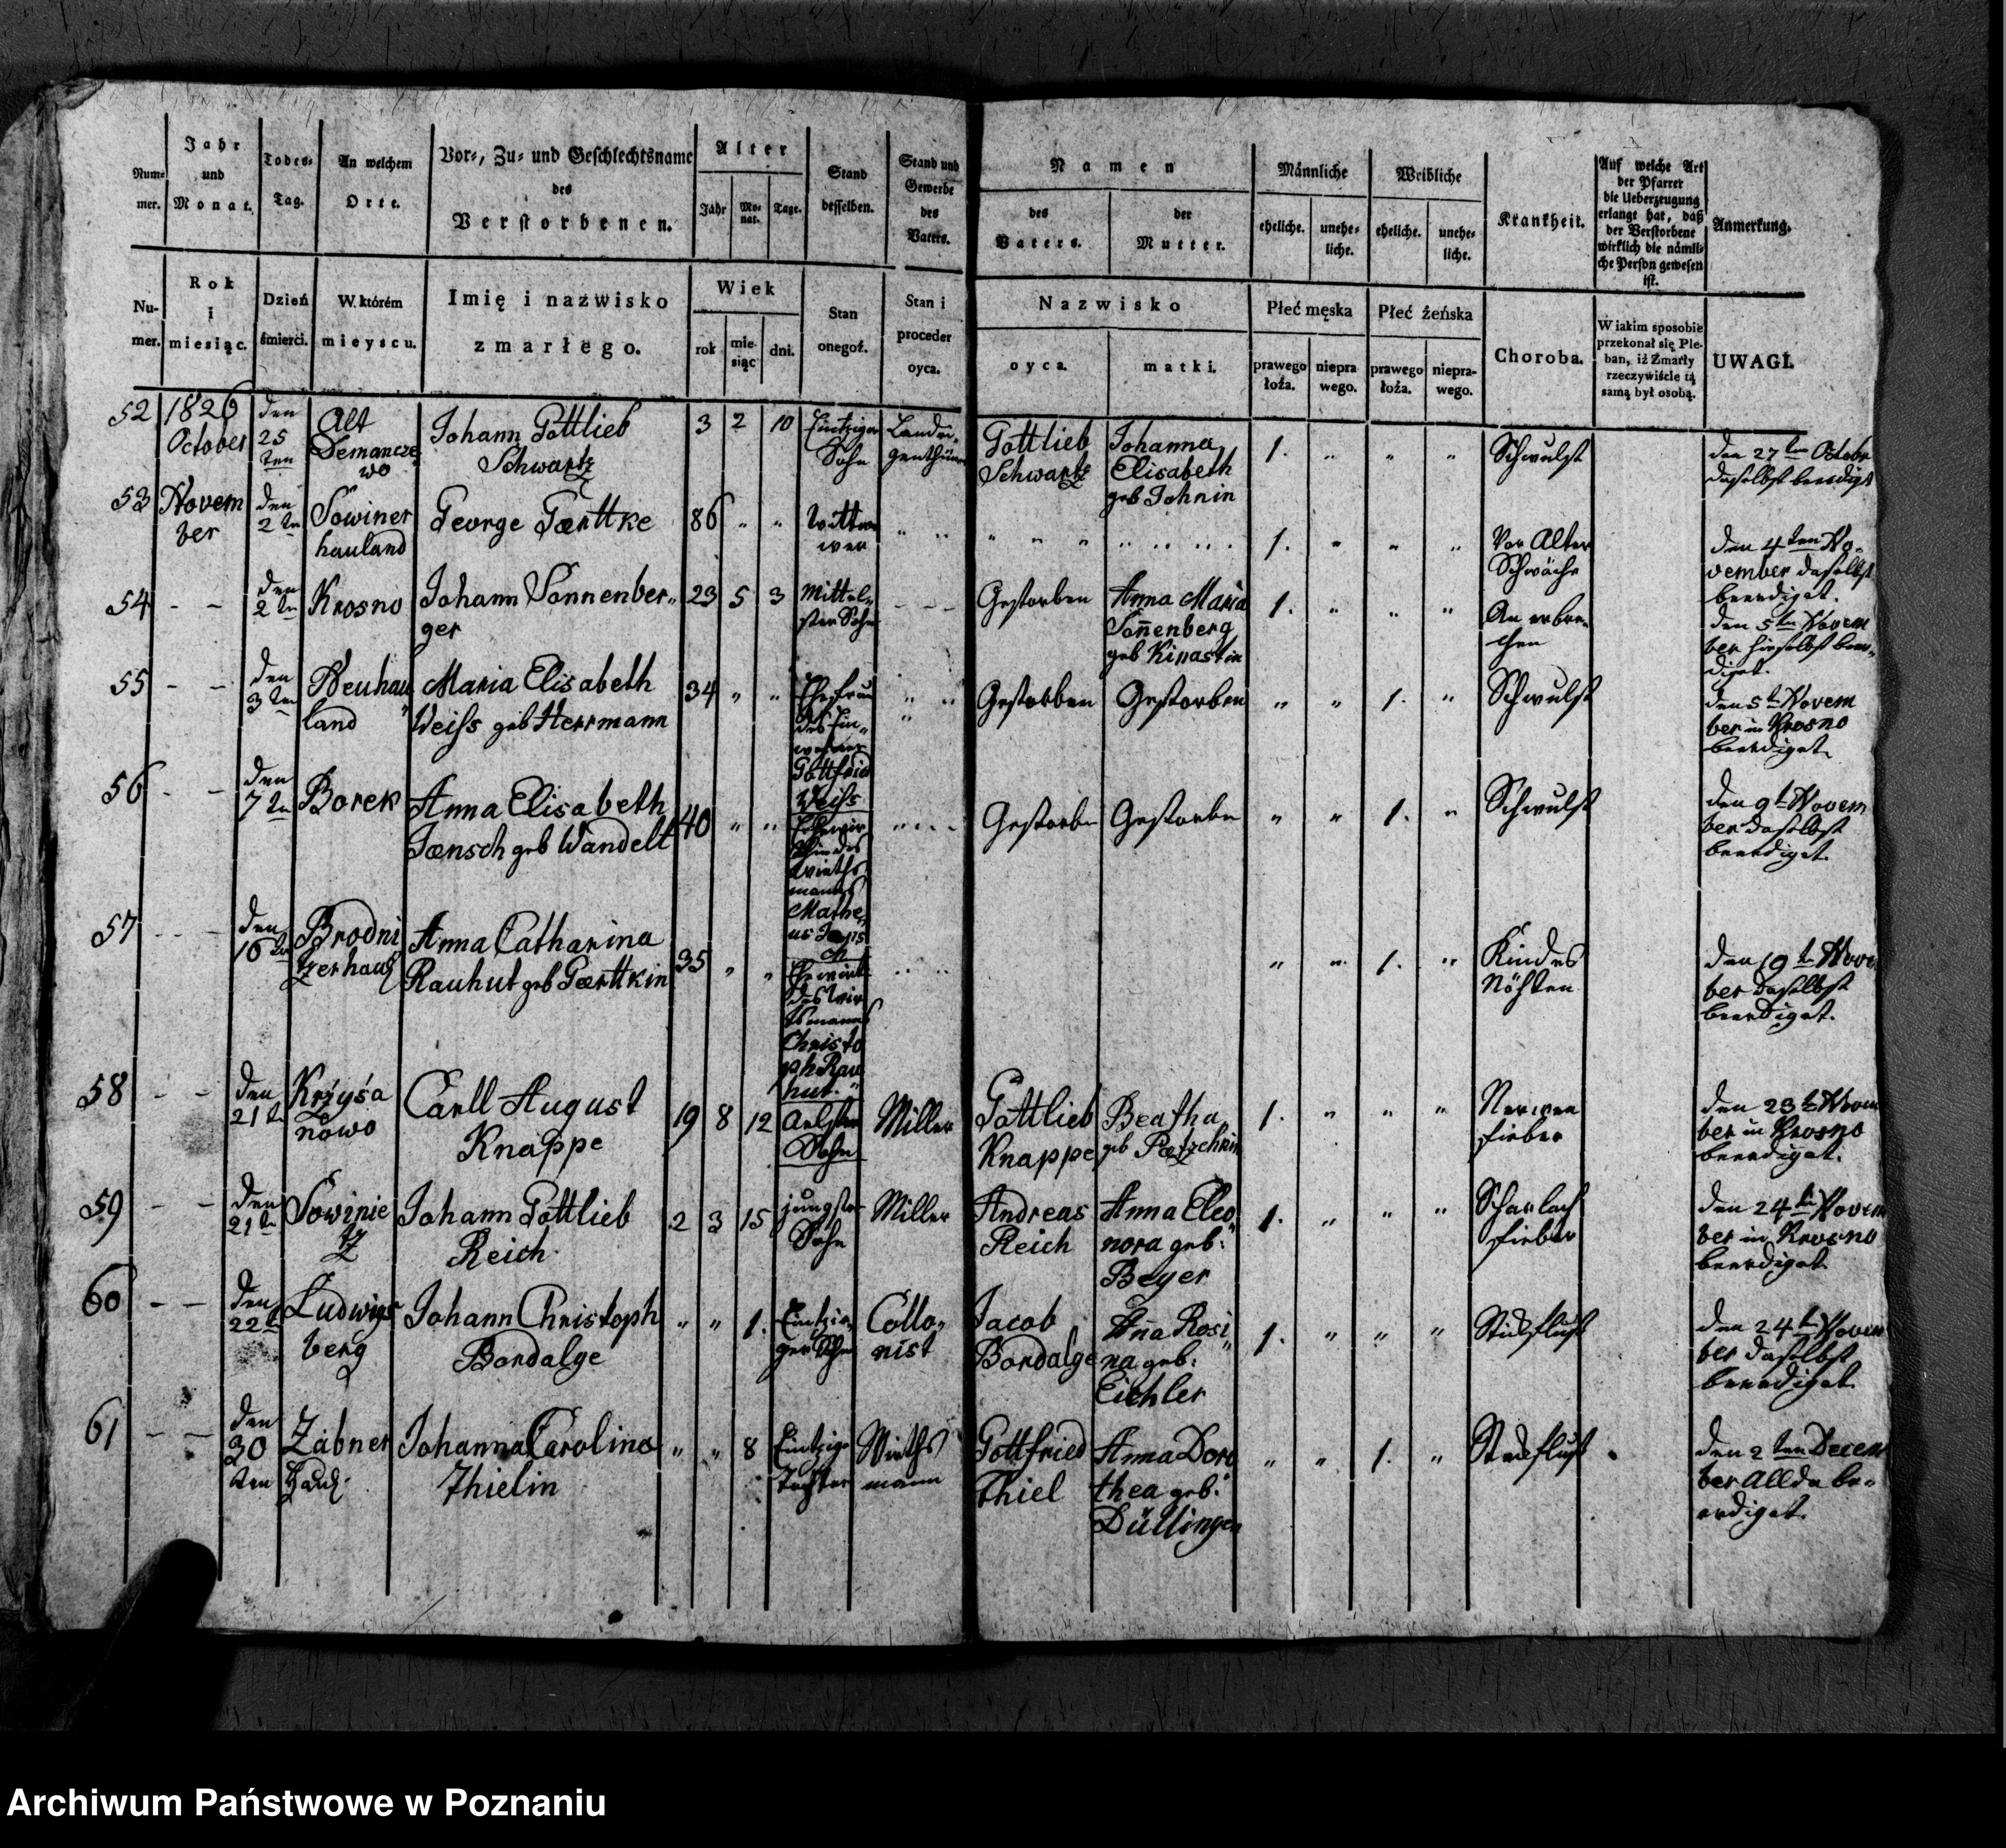 Num-
mer.
Jahr
und
Monat.
Todes-
Tag.
An welchem
Orte.
Vor-, Zu- und Geschlechtsname
des
Verstorbenen.
Alter
Jahr
Mo-
nat.
Tage.
Stand
desselben.
Stand und
Gewerbe
des
Vaters.
Namen
des
Vaters.
der
Mutter.
Männliche
eheliche.
unehe-
liche.
Weibliche
eheliche.
unehe-
liche.
Krankheit.
Auf welche Art
der Pfarrer
die Ueberzeugung
erlangt hat, daß
der Verstorbene
wirklich die nämli-
che Person gewesen
ist.
Anmerkung.
Nu-
mer.
Rok
i
miesiąc.
Dzień
śmierci.
W. którém
mieyscu.
Imię i nazwisko
zmarłego.
Wiek
rok
mie-
siąc
dni.
Stan
onegoż.
Stan i
proceder
oyca.
Nazwisko
oyca.
matki.
Płeć męska
prawego
łoża.
niepra
wego.
Płeć żeńska
prawego
łoża.
niepra-
wego.
Choroba.
W iakim sposobie
przekonał się Ple-
ban, iż Zmarły
rzeczywiście tą
samą był osobą.
UWAGI.
52
1826
October
den
25
ten
Alt
Demancze
wo
Johann Gottlieb
Schwartz
3 2 10
Eintziger
Sohn
Gottlieb
Schwartz
Johanna
Elisabeth
geb Johnin
1. " " "
Schwulst
den 27ten Octobr
daselbst beerdigt
53
Novem
ber
den
2 ten
Sowiner
hauland
George Gærttke
86 " "
Wittwe
wer
1. " " "
Vor Alter
Schwäche
den 4ten No-
vember daselbst
beerdiget.
54 - -
den
2 ten
Krosno
Johann Sonnenber-
ger
23 5 3
Mittel-
ster Sohn
Gestorben
Anna Maria
Soñenberg
geb Kinastin
1. " " "
den 5ten Novem
ber hieselbst beer-
diget.
55 - -
den
3 ten
Neuhau
land
Maria Elisabeth
Weiss geb Herrmann
34 " "
Ehefrau
des Ein-
wohner
Gottfried
Weiss
Gestorben
Gestorben
" " 1. "
Schwulst
den 5t Novem
ber in Krosno
beerdiget.
56 - -
den
7 ten
Borek
Anna Elisabeth
Jænsch geb Wandelt
40 " "
Gestorben
Gestorben
" " 1. "
Schwulst
den 9t Novem
ber daselbst
beerdiget.
57 - -
den
16 ten
Brodni
tzerhaul
Anna Catharina
Rauhut geb Gærttkin
35 " "
Ehewirt
des Wir
thsmanns
Christo
ph Rau
hut.
" " 1. "
Kindes
Nöthen
den 19t Novem
ber daselbst
beerdiget.
58 - -
den
21 t
Krżyśa
nowo
Carll August
Knappe
19 8 12
Aelster
Sohn
Miller
Gottlieb
Knappe
Beatha
geb Pætzchnin
1. " " "
Nerven
fieber
den 23t Novem
ber in Krosno
beerdiget.
59 - -
den
21 ten
Sowinie
tz
Johann Gottlieb
Reich
2 3 15
jüngster
Sohn
Miller
Andreas
Reich
Anna Eleo
nora geb:
Beyer
1. " " "
Scharlach
fieber
den 24t Novem
ber in Krosno
beerdiget
60 - -
den
22 t
Ludwigs
berg
Johann Christoph
Bordalge
" " 1.
Eintzi-
ger Sohn
Collo-
nist
Jacob
Bordalge
Añna Rosi
na geb:
Eichler
1. " " "
Stickfluß
den 24t Novem
ber daselbst
beerdiget
61 - -
den
30
ten
Zabner
Haul.
Johanna Carolina
Thielin
" " 8
Eintzige
Tochter
Wirths
mann
Gottfried
Thiel
Anna Doro
thea geb:
Düllingen
" " 1. "
Stickfluß
den 2ten Decem
ber Allda be-
erdiget.
Archiwum Państwowe w Poznaniu